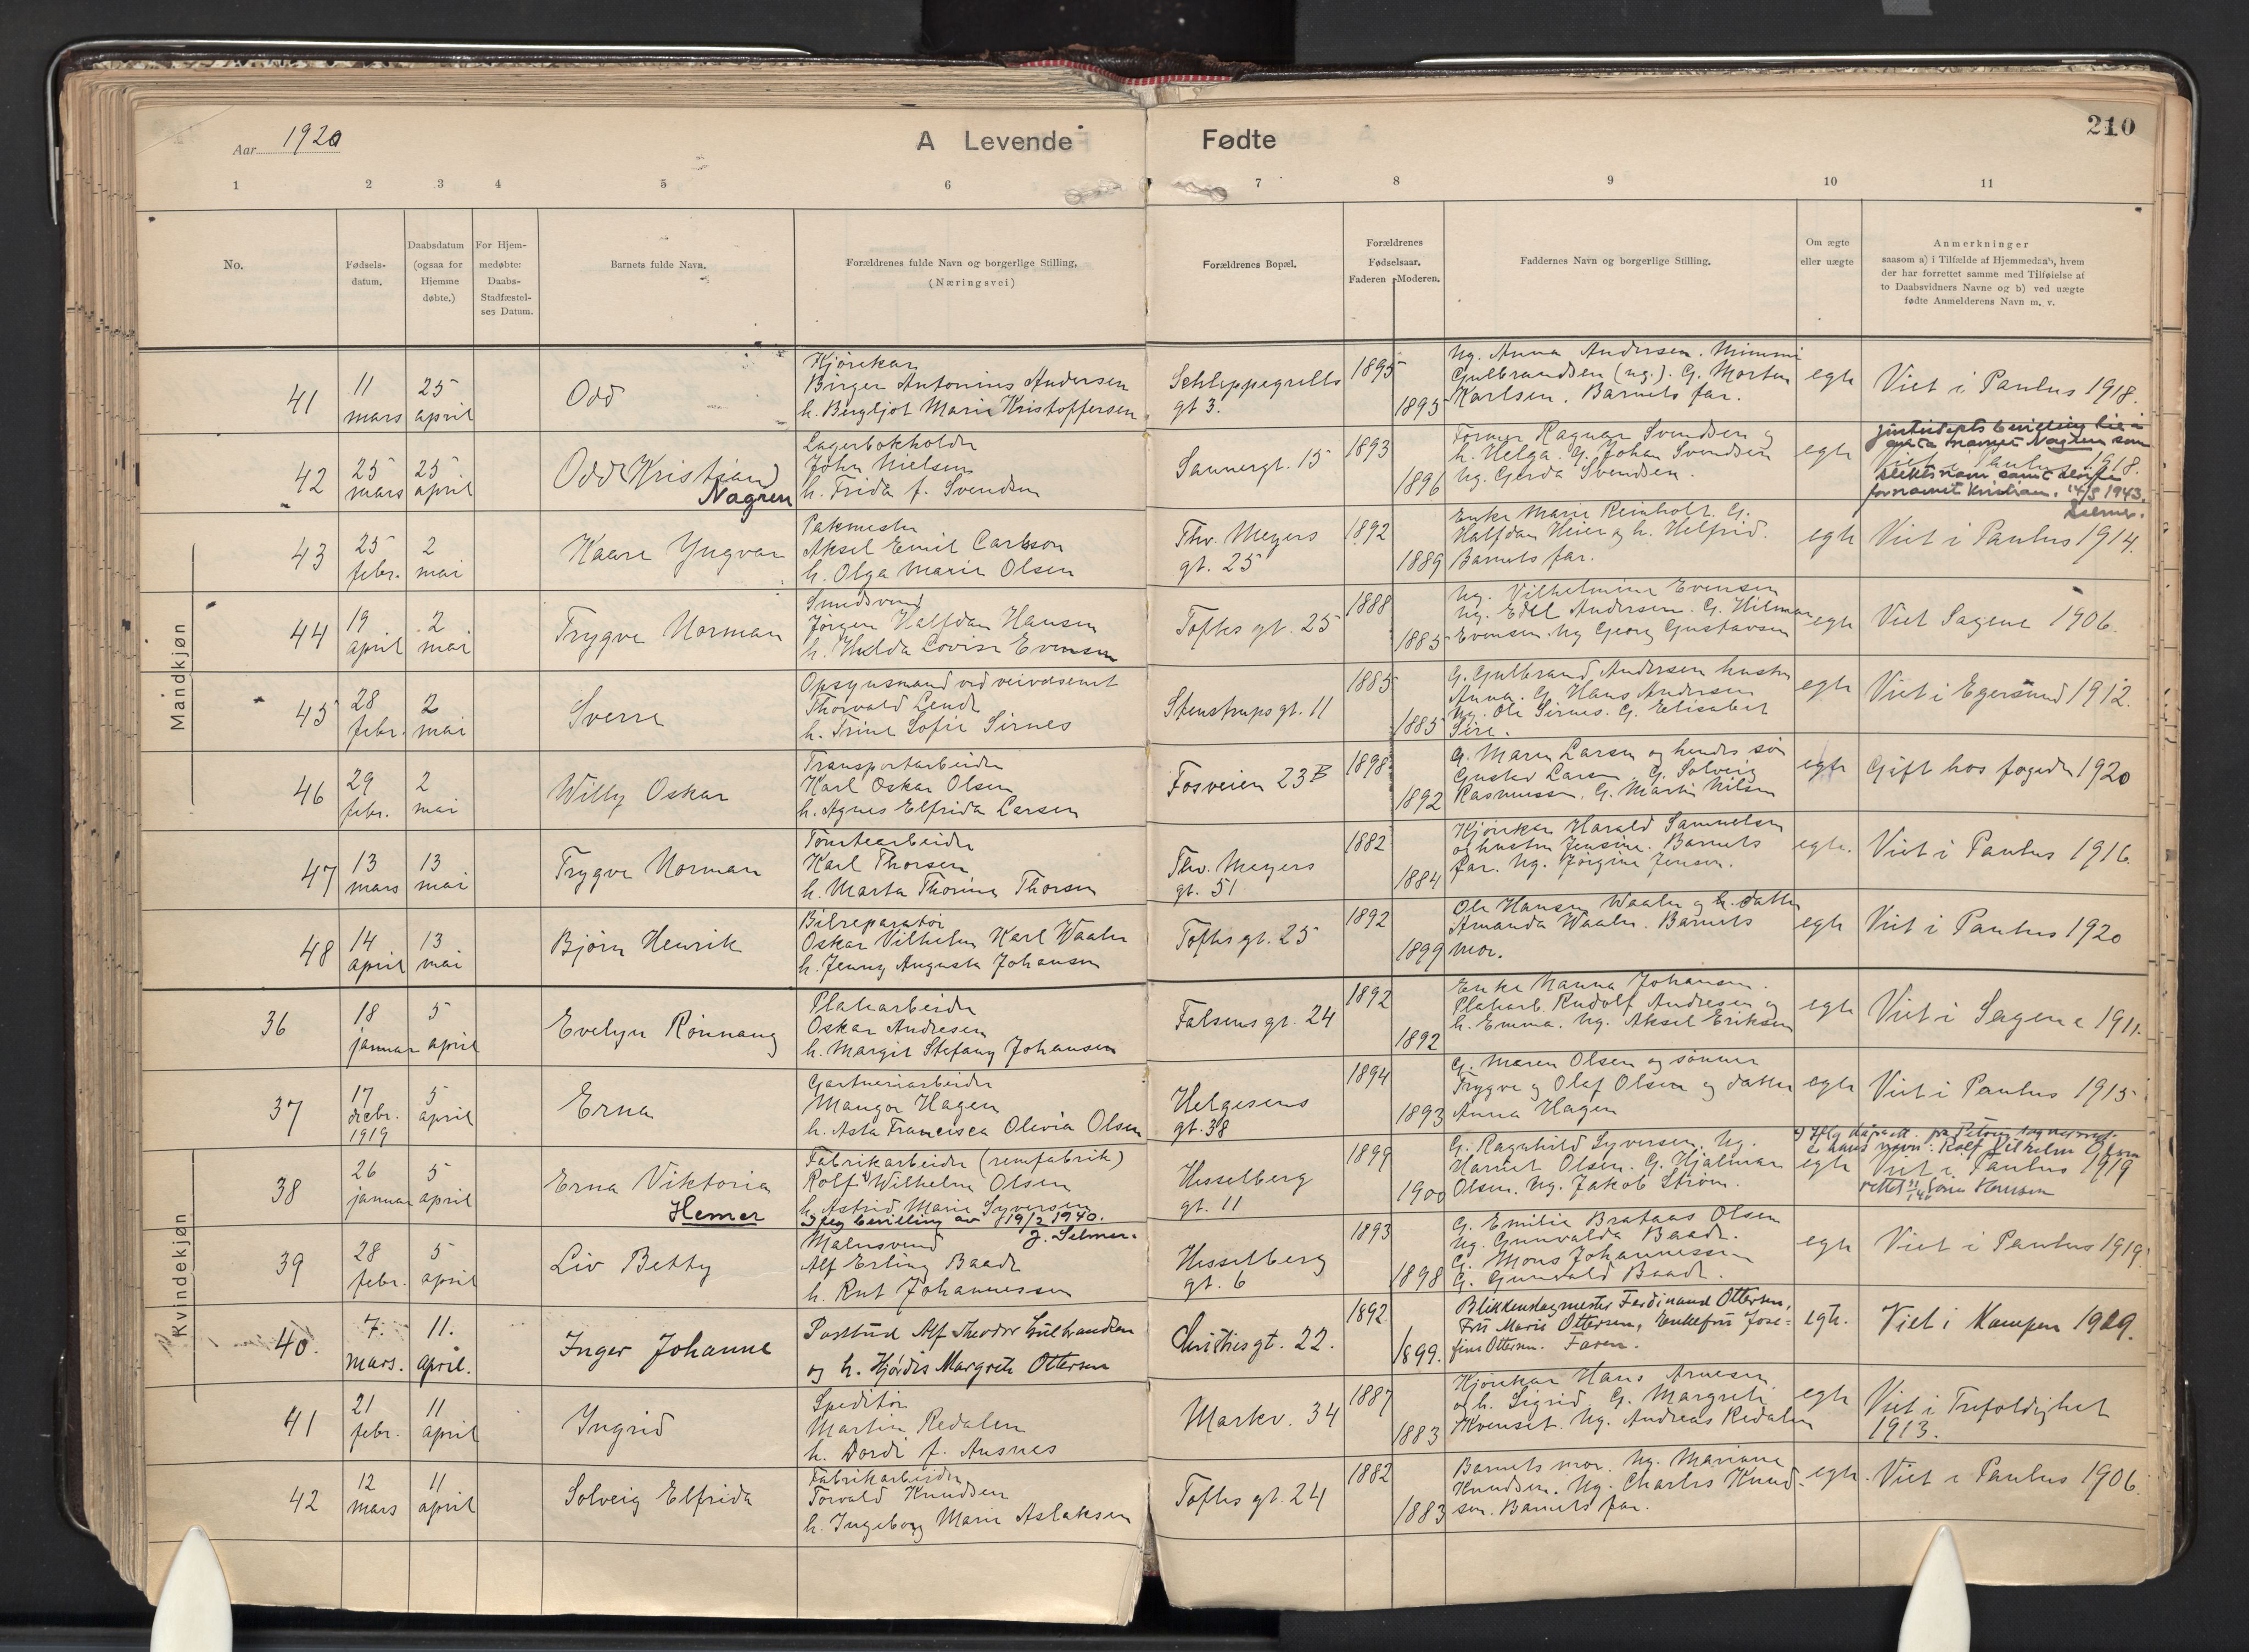 Aar 1920
A Levende
Fødte
210
1 2 3 4 5 6 7 8 9 10 11
No.
Fødsels-
datum.
Daabsdatum
(ogsaa for
Hjemme
døbte.)
For Hjem-
medøbte:
Daabs-
Stadfæstel-
ses Datum.
Barnets fulde Navn.
Forældrenes fulde Navn og borgerlige Stilling.
(Næringsvei)
Forældrenes Bopæl.
Forældrenes
Fødselsaar.
Faderen Moderen.
Faddernes Navn og borgerlige Stilling.
Om ægte
eller uægte
Anmerkninger
saasom a) i Tilfælde af Hjemmedaab, hvem
der har forrettet samme med Tilføielse af
to Daabsvidners Navne og b) ved uægte
fødte Anmelderens Navn m. v.
Mandkjøn
41
11
mars
25
april
Odd
Kjørekar
Birger Antonius Andersen
h. Bergljot Marie Kristoffersen
Schleppegrells
gt 3.
1895
1895
Ug. Anna Andersen. Mimmi
Gulbrandsen (ug.). G. Morten
Karlsen. Barnets far.
egte
Viet i Paulus 1918.
42
25
mars
25
april
Odd Kristian
Nagren
Lagerbokholder
John Nielsen
h. Frida f. Svendsen
Sannergt. 15
1893
1896
Former Ragnar Svendsen og
h. Helga. G. Johan Svendsen
Ug. Gerda Svendsen.
egte
navnet Nagren som
Viet i Paulus 1918.
slektsnavn samt sløife
fornavnet Kristian. 14/5 1943.
43
25
febr.
2
mai
Kaare Yngvar
Pakmester
Aksel Emil Carlsson
h. Olga Marie Olsen
Thv. Meyers
gt. 25
1892
1889
Enke Marie Reinholt. G.
Halfdan Heier og h. Helfrid.
Barnets far.
egte
Viet i Paulus 1914.
44
19
april
2
mai
Trygve Norman
Smedsvend
Jørgen Halfdan Hansen
h. Hulda Lovise Evensen
Toftes gt. 25
1888
1885
Ug. Vilhelmine Evensen
Ug. Edel Andersen. G. Hilmar
Evensen. Ug Georg Gustavsen
egte
Viet Sagene 1906.
45
28
febr.
2
mai
Sverre
Opsynsmand ved veivæsenet
Thorvald Lende
h. Trine Sofie Sirnes
Stenstrups gt. 11
1885
1885
G. Gulbrand Andersen hustru
Anna. G. Hans Andersen
Ug. Ole Sirnes. G. Elisabet
egte
Viet i Egersund 1912.
46
29
febr.
2
mai
Willy Oskar
Transportarbeider
Karl Oskar Olsen
h. Agnes Elfrida Larsen
Fosveien 23 B
1898
1892
G. Maren Larsen og hendes søn
Gustav Larsen G. Solveig
Rasmussen. G. Martin Nilsen
egte
Gift hos fogeden 1920
47
13
mars
13
mai
Trygve Norman
Tomtearbeider
Karl Thorsen
h. Marta Thorine Thorsen
Thv. Meyers
gt. 51
1882
1884
Kjørekar Harald Samuelsen
og hustru Jensine. Barnets
far. Ug. Jørgine Jensen.
egte.
Viet i Paulus 1916.
48
14
april
13
mai
Bjørn Henrik
Bilreparatør
Oskar Vilhelm Karl Waaler
h. Jenny Augusta Johansen
Toftes gt. 25
1892
1899
Ole Hansen Waaler og h. datter
Amanda Waaler. Barnets
mor.
egte
Viet i Paulus 1920
Kvindekjøn
36
18
januar
5
april
Evelyn Rønnaug
Platearbeider
Oskar Andresen
h. Margit Stefany Johansen
Falsens gt. 24
1892
1892
Enke Nanna Johansen.
Platearb. Rudolf Andresen og
h. Emma. Ug. Aksel Eriksen
egte
Viet i Sagene 1911.
37
17
decbr.
1919
5
april
Erna
Gartneriarbeider
Mangor Hagen
h. Asta Francisca Olivia Olsen
Helgesens
gt. 38
1894
1893
G. Maren Olsen og sønner
Trygve og Olaf Olsen og datter
Anna Hagen
egte
Viet i Paulus 1915
38
26
januar
5
april
Erna Viktoria
Hemer
Fabrikarbeider (remfabrik)
Rolf Wilhelm Olsen
h. Astrid Marie Syversen
Iflg bevilling av 19/2 1940.
J. Selmer.
Hesselberg
gt. 11
1899
1900
G. Ragnhild Syversen. Ug.
Harriet Olsen. G. Hjalmar
Olsen. Ug. Jakob Strøm.
egte
Viet i Paulus 1919
39
28
febr.
5
april
Liv Betty
Malersvend
Alf Erling Baade
h. Rut Johannessen
Hesselberg
gt. 6
1893
1898
G. Emilie Brataas Olsen
Ug. Gunvalda Baade.
G. Mons Johannessen
G. Gunvald Baade.
egte
Viet i Paulus 1919.
40.
7.
mars.
11.
april.
Inger Johanne
Postbud Alf Theodor Gulbrandsen
og h. Hjørdis Margrete Ottersen
Christies gt. 22.
1892.
1899.
Blikkenslagermester Ferdinand Ottersen,
Fru Marie Ottersen, Enkefru Jose-
fine Ottersen. Faren.
egte.
Viet i Kampen 1919.
41
21
febr.
11
april
Yngrid
Speditør
Martin Redalen
h. Dordi f. Ausnes
Markv. 34
1887
1883
Kjørekar Hans Arnesen
og h. Sigrid G. Margrete
Kvenset. Ug. Andreas Redalen
egte
Viet i Trefoldighet
1913.
42
12
mars
11
april
Solveig Elfrida
Fabrikarbeider
Torvald Knudsen
h. Ingeborg Marie Aslaksen
Toftes gt. 24
1882
1883
Barnets mor. Ug. Mariane
Knudsen. Ug. Charles Knud-
sen. Barnets far.
egte.
Viet i Paulus 1906.